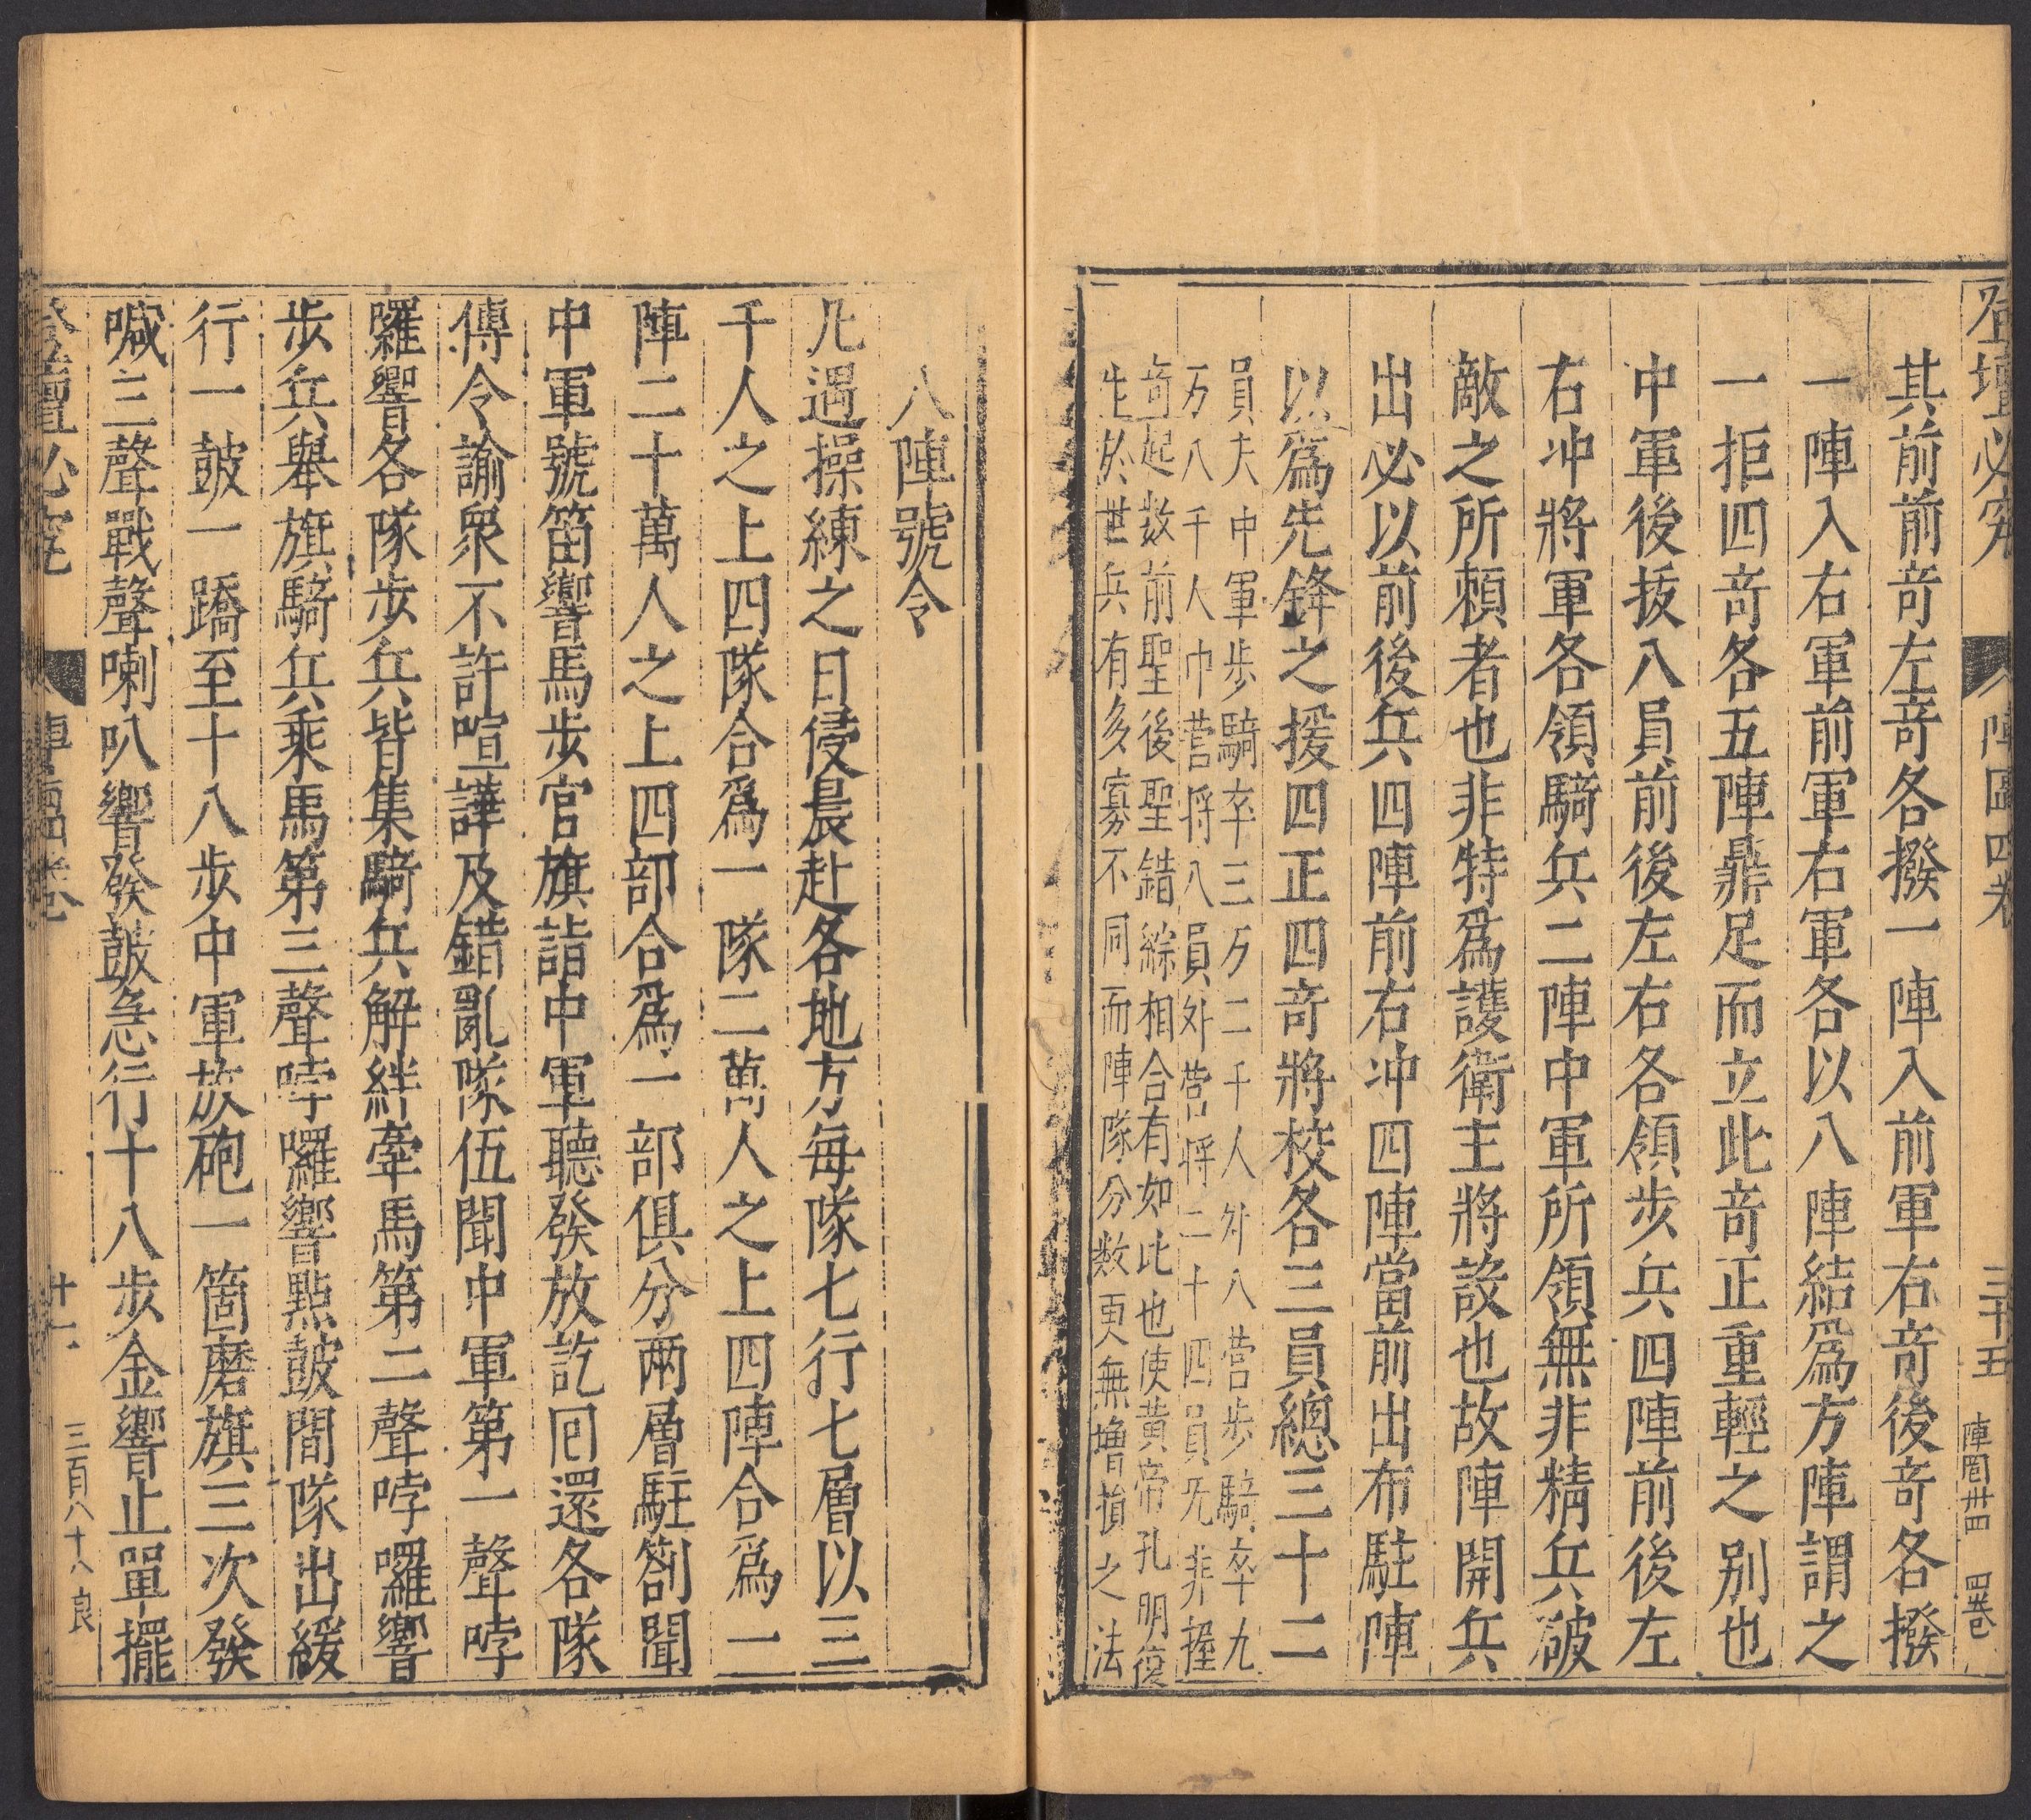 登壇必究 陣圖四卷 三十五 陣圖卅四 四卷
其前前竒左竒各撥一陣入前軍右竒後竒各撥
一陣入右軍前軍右軍各以八陣結爲方陣謂之
一拒四竒各五陣鼎足而立此竒正重輕之别也
中軍後㧞八員前後左右各領步兵四陣前後左
右冲將軍各領騎兵二陣中軍所領無非精兵破
敵之所頼者也非特爲護衛主將設也故陣開兵
出必以前後兵四陣前右冲四陣當前出布駐陣
以爲先鋒之援四正四竒將校各三員總三十二
員夫中軍步騎卒三万二千人外八營步騎卒九
万八千人巾營將八員外營將二十四員旡非握
竒起数前聖後聖錯綜相合有如此也使黃帝孔明復
生於世兵有多寡不同而陣隊分数更無增損之法
八陣號令
凢遇操練之日侵晨赴各地方每隊七行七層以三
千人之上四隊合爲一隊二萬人之上四陣合爲一
陣二十萬人之上四部合爲一部俱分兩層駐劄聞
中軍號笛響馬步官旗詣中軍聽發放訖囘還各隊
傳令諭衆不許喧譁及錯亂隊伍聞中軍第一聲哱
囉響各隊步兵皆集騎兵解絆牽馬第二聲哱囉響
步兵舉旗騎兵乗馬第三聲哱囉響點皷間隊出緩
行一皷一蹻至十八步中軍放砲一箇磨旗三次發
喊三聲戰聲喇叭響發皷急行十八步金響止單擺
登壇必究 陣圖四卷 十一 三百八十八 良